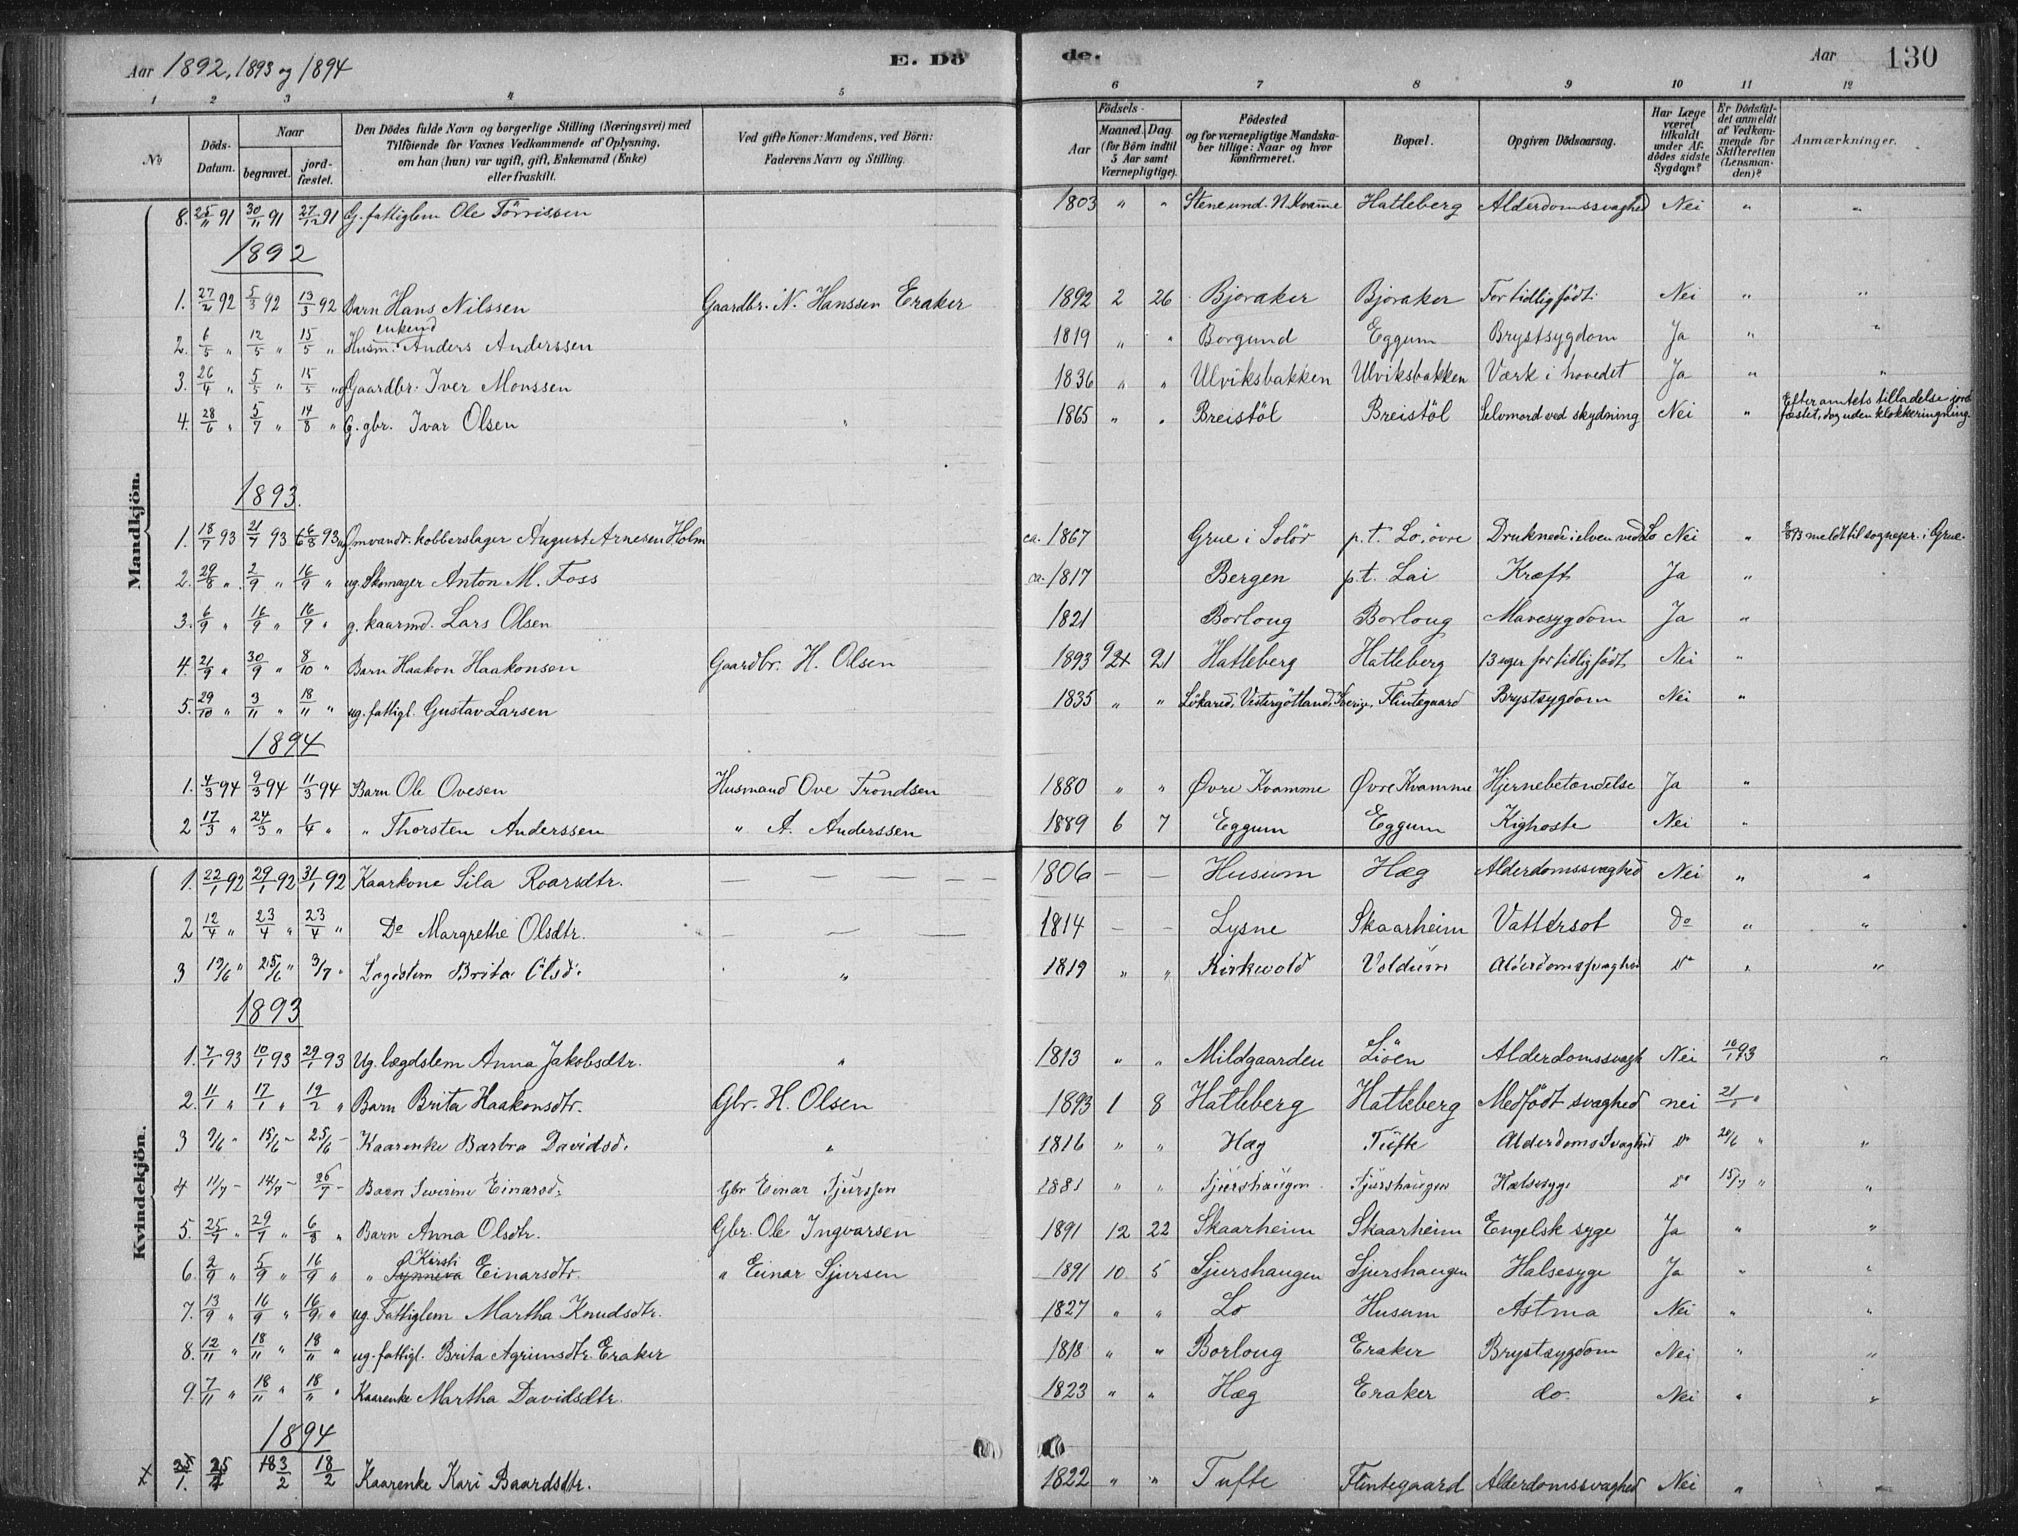 Aar 1892, 1893 og 1894 E. Dö de. Aar 130
1 2 3 4 5 6 7 8 9 10 11 12
No
Döds-Datum.
Naar
begravet. jord-fæstet.
Den Dödes fulde Navn og borgerlige Stilling (Næringsvei) med
Tilföiende for Voxnes Vedkommende af Oplysning,
om han (hun) var ugift, gift, Enkemand (Enke)
eller fraskilt.
Ved gifte Koner: Mandens, ved Börn:
Faderens Navn og Stilling.
Födsels-
Aar Maaned. Dag.
(for Börn indtil
5 Aar samt
Værnepligtige).
Födested
og for værnepligtige Mandska-
ber tillige: Naar og hvor
konfirmeret.
Bopæl.
Opgiven Dödsaarsag.
Har Læge
været
tilkaldt
under Af-
dödes sidste
Sygdom?
Er Dödsfal-
det anmeldt
af Vedkom-
mende for
Skifteretten
(Lensman-
den)?
Anmærkninger.
Mandkjön.
8. 25/11 91 30/11 91 27/12 91 G. fattiglem Ole Törrissen 1803 " " Stene und. N. Kvamme Hatleberg Alderdomssvaghed Nei " "
1892
1. 27/2 92 5/3 92 13/3 92 Barn Hans Nilssen Gaardbr. N. Hanssen Eraker 1892 2 26 Bjoraker Bjoraker For tidlig født. Nei " "
2. 6/5 " 12/5 " 15/5 " Husm. enkem Anders Anderssen 1819 " " Borgund Eggum Brystsygdom Ja " "
3. 26/4 " 5/5 " 15/5 " g Gaardbr. Iver Monssen 1836 " " Ulviksbakken Ulviksbakken Værk i hovedet Ja " "
4. 28/6 " 5/7 " 14/8 " G. gbr. Ivar Olsen " 1865 " " Breistöl Breistöl Selvmord ved skydning Nei " Efter amtets tilladelse jord
fæstet, dog uden klokkeringning.
1893.
1. 18/7 93 21/7 93 6/8 93 ug Omvandr. kobberslager August Arnesen Holm ca. 1867 Grue i Solör p.t. Lo, övre Druknede i elven ved Lo Nei " meldt til sognepr. i Grue.
2. 29/8 " 2/9 " 16/9 " ug. Skomager Anton M. Foss ca. 1817 Bergen p.t. Lai Kræft Ja "
3. 6/9 " 16/9 " 16/9 " g. kaarmd. Lars Olsen 1821 Borloug Borloug Mavesygdom Ja "
4. 21/9 " 30/9 " 8/10 " Barn Haakon Haakonsen Gaardbr. H. Olsen 1893 9 21 Hatleberg Hatleberg 13 uger for tidlig født. Nei "
5. 29/10 " 3/11 " 18/11 " ug. fattigl. Gustav Larsen 1835 " " Lökared, Vestergötland, Sverige, Flintegaard Brystsygdom Nei "
1894
1. 4/3 94 9/3 94 11/3 94 Barn Ole Ovesen Husmand Ove Trondsen 1880 " " Øvre Kvamme Øvre Kvamme Hjernebetændelse Ja "
2 17/3 " 24/3 " 1/4 " " Thorsten Anderssen " A. Anderssen 1889 6 7 Eggum Eggum Kighoste Nei "
Kvindekjön.
1. 22/1 92 29/1 92 31/1 92 Kaarkone Sila Roarsdtr. — — — — — 1806 — — Husum Hæg Alderdomssvaghed Nei " "
2 12/4 " 23/4 " 23/4 " Do Margrethe Olsdtr. — — — 1814 — — Lysne Skaarheim Vattersot Do " "
3 19/6 " 25/6 " 3/7 " Lægdslem Brita Olsd. " 1819 " " Kirkevold Voldum Alderdomssvaghed Do " "
1893
1. 7/1 93 10/1 93 29/1 93 Ug. lægdslem Anna Jakobsdtr. " 1813 " " Mildgaarden Liøen Alderdomssvagh Nei 10/1 93 "
2. 11/1 " 17/1 " 19/2 " Barn Brita Haakonsdtr. Gbr. H. Olsen 1893 1 8 Hatleberg Hatleberg Medfødt svaghed nei 21/1 "
3 9/6 - 15/6 - 25/6 - Kaarenke Barbra Davidsd. " 1816 " " Hæg Tufte Alderdoms Svaghed Do 20/6 " "
4 11/7 - 14/7 - 26/7 - Barn Severine Einarsd. Gbr Einar Sjurssen 1881 " " Sjurshaugen Sjurshaugen Halsesyge Do 15/7 " "
5. 25/7 " 29/7 " 6/8 " Barn Anna Olsdtr. Gbr. Ole Ingvarsen 1891 12 22 Skaarheim Skaarheim Engelsk syge Ja " "
6. 2/9 " 5/9 " 16/9 " " Kirsti Synneva Einarsdtr. " Einar Sjursen 1891 10 5 Sjurshaugen Sjurshaugen Halsesyge Ja " "
7. 13/9 " 16/9 " 16/9 " ug. Fattiglem Martha Knudsdtr. 1827 " " Lo Husum Astma Nei " "
8. 12/11 " 18/11 " 18/11 " ug. fattigl. Brita Agrimsdtr. Eraker 1818 " " Borloug Eraker Brystsygdom Nei " "
9. 7/11 " 18/11 " 18/11 " Kaarenke Martha Davidsdtr. 1823 " " Hæg Eraker do. Nei " "
1894
1. 3/2 18/2 Kaarenke Kari Baardsdtr. 1822 " " Tufte Flintegaard Alderdomssvaghed Nei " "